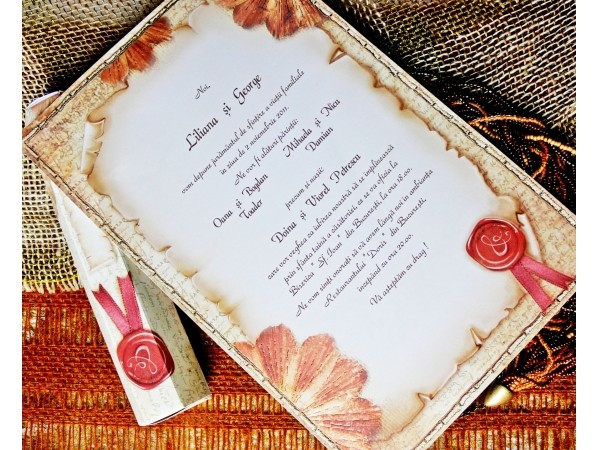 Noi,
Liliana și George
vom depune jurământul de sfințire a vieții familiale
în ziua de 2 noiembrie 2011.
Ne vor fi alături părinții:
Oana și Bogdan Mihaela și Nicu
Toader Damian
precum și nașii:
Doina și Viorel Petrescu
care vor veghea ca iubirea noastră să se împlinească
prin sfânta taină a căsătoriei, ce se va oficia la
Biserica " Sf. Ioan " din București la ora 18.00.
Ne vom simți onorați să vă avem lângă noi în ambianța
Restaurantului "Doris" din București
începând cu ora 20.00.
Vă așteptăm cu drag !